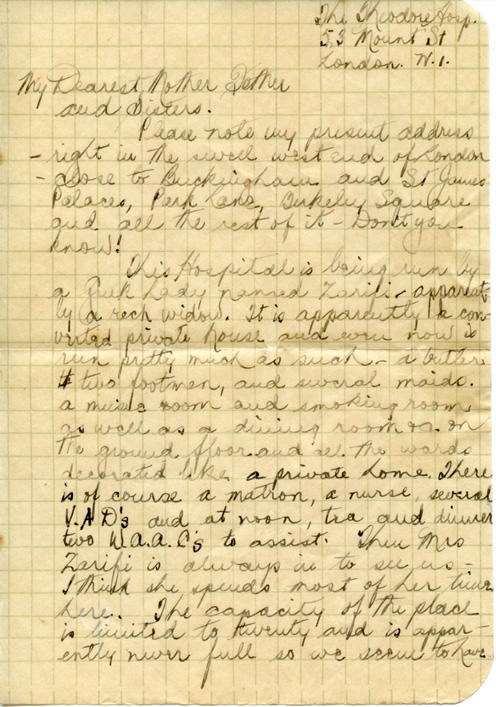 The Theodore Hosp.
53 Mount St
London. W.1.
My Dearest Mother Father
and Sisters.
Please note my present address
- right in the swell west end of London
- Close to Buckingham and St James
Palaces, Park Lane, Berkeley Square
and all the rest of it - Don't you
know!
This Hospital is being run by
a Greek Lady named Zarifi - apparent-
ly a rich widow. It is apparently a con-
verted private house and even now is
run pretty much as such - a butler
& two footmen, and several maids.
a music room and smoking room
as well as a dining room on
the ground floor and all the wards
decorated like a private home. There
is of course a matron, a nurse, several
V.A.D's and at noon, tea and dinner
two W.A.A.C's to assist. Then Mrs
Zarifi is always in to see us -
I think she spends most of her time
here. The capacity of the place
is limited to twenty and is appar-
ently never full so we seem to have